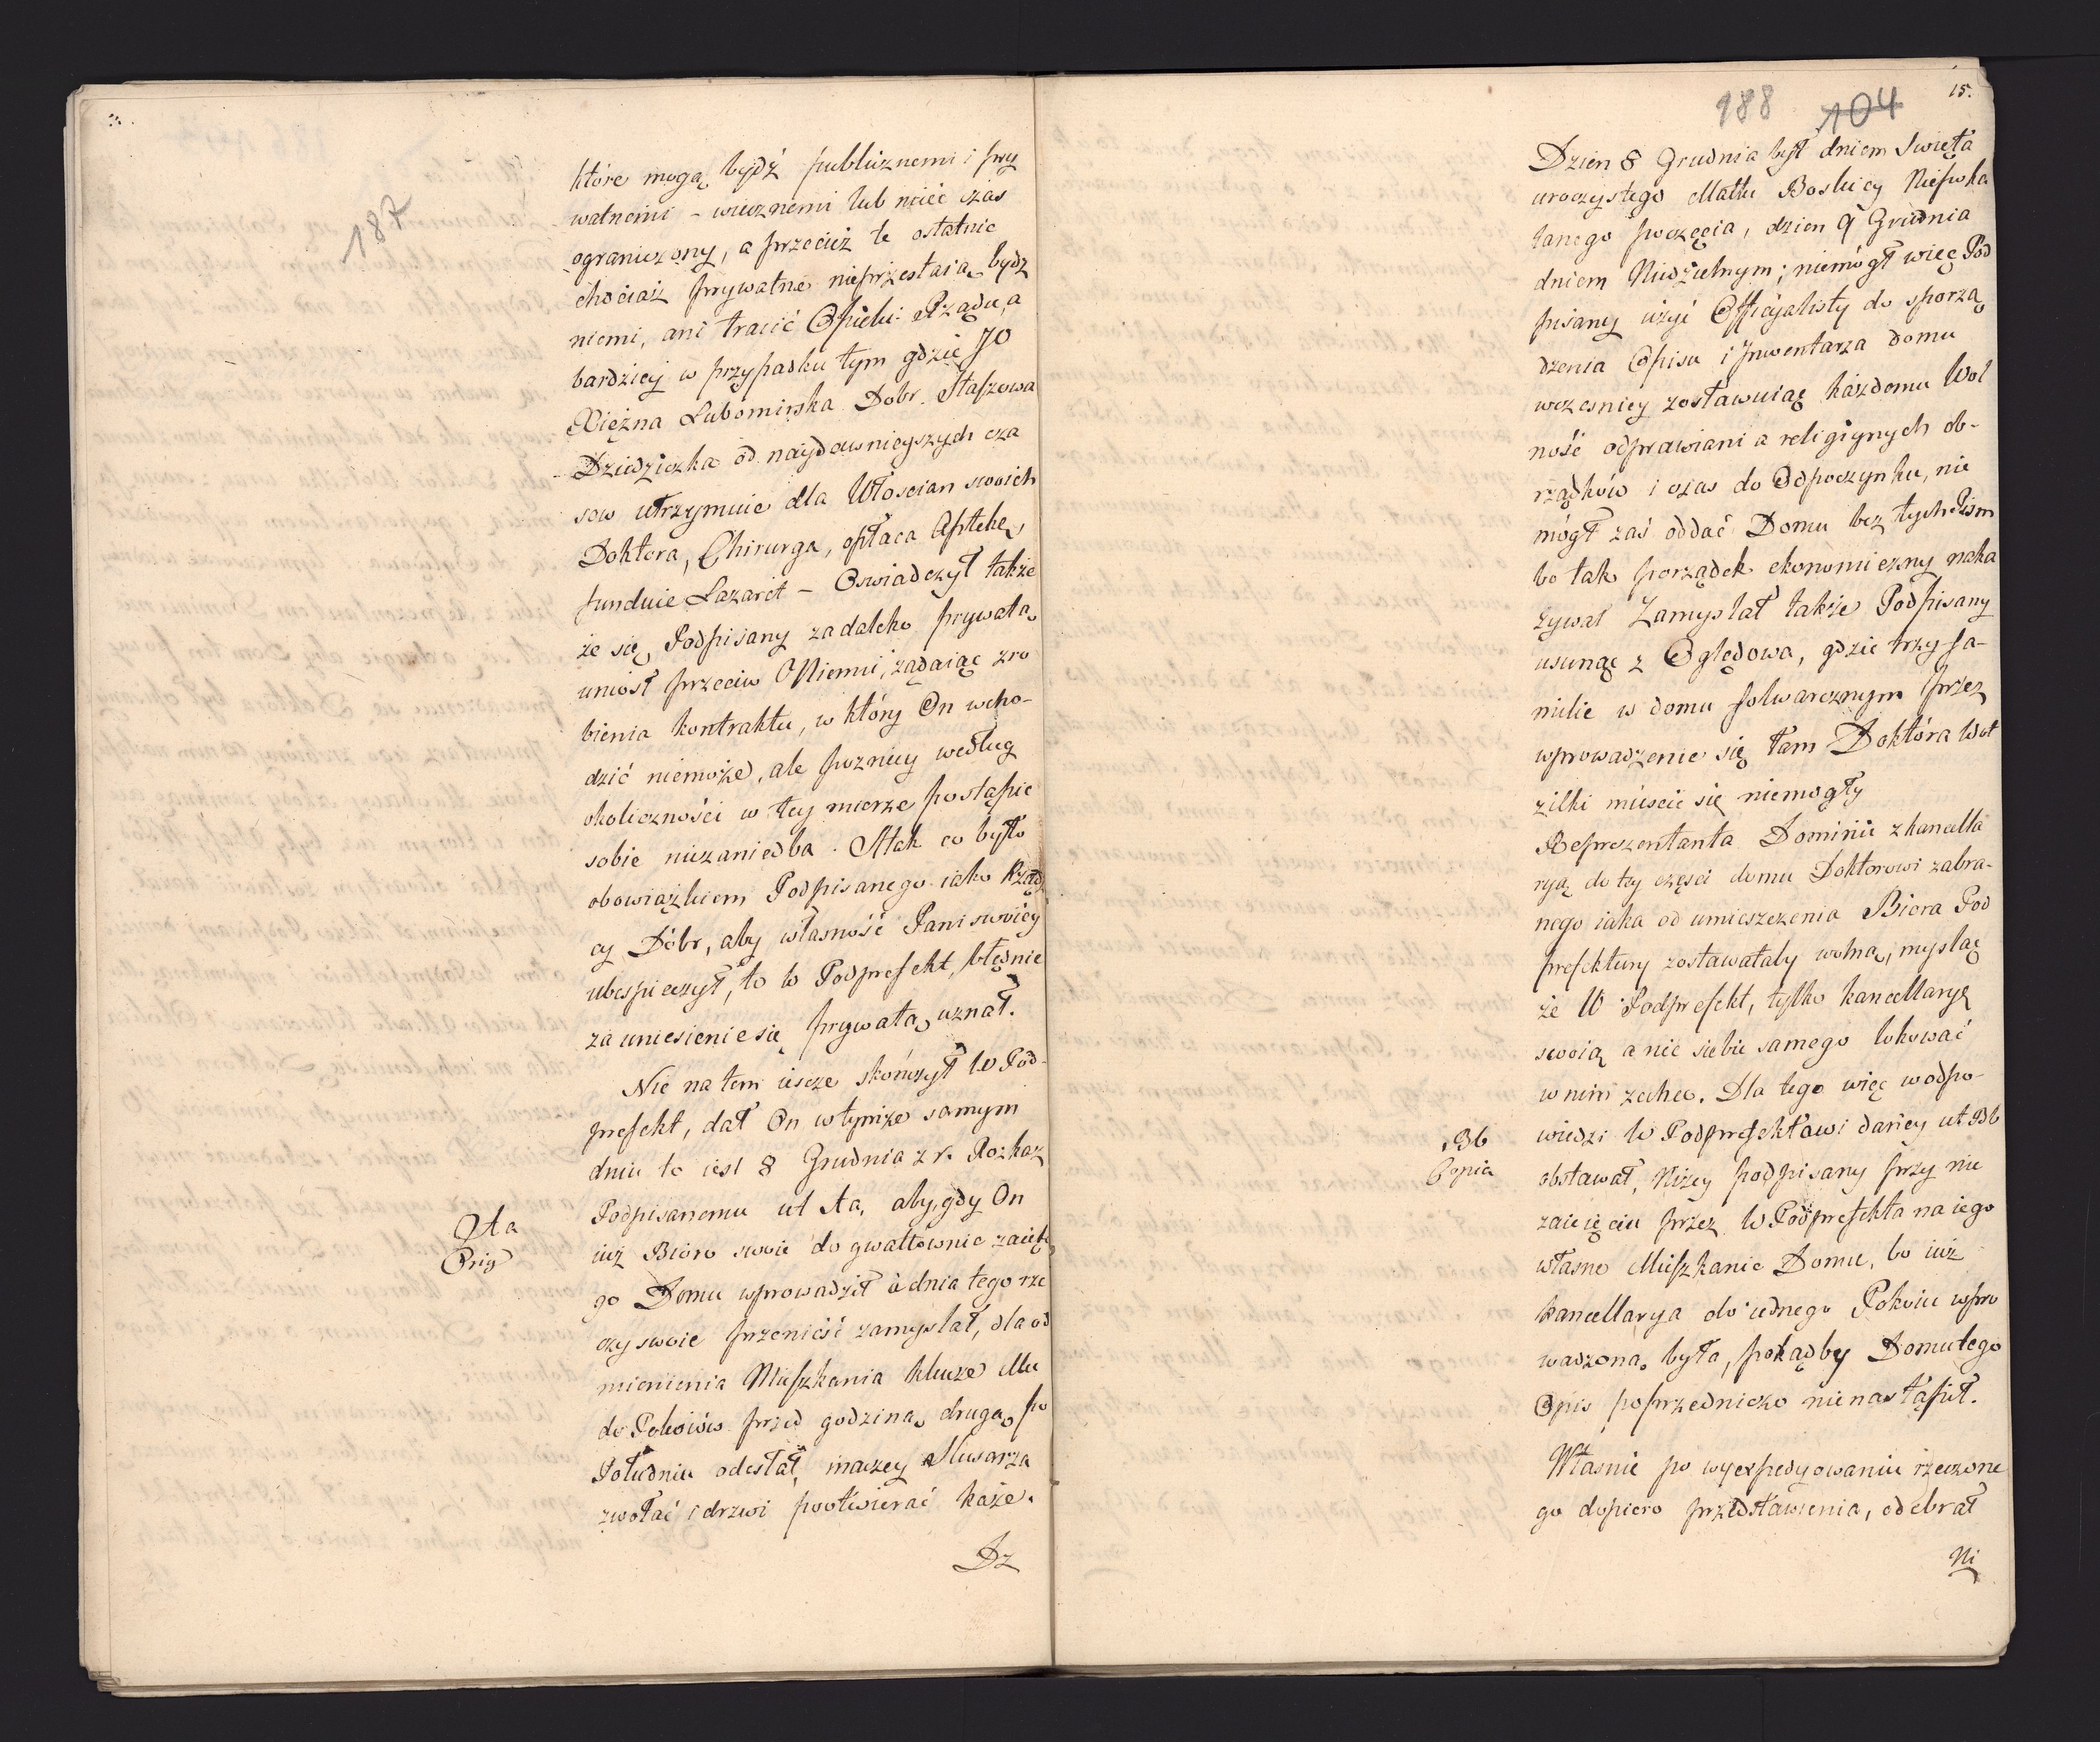 187
które mogą bydź publicznemi i pry
watnemi – wiecznemi lub mieć czas
ograniczony, a przecież te ostatnie
chociaż prywatne nieprzestaią bydz
niemi, ani tracić Opieki Rządu, a
bardziey w przypadku tym gdzie JO
Xiężna Lubomirska Dobr Staszowa
Dziedziczka od naydawnieyszych cza
sow utrzymuie dla Włoscian swoich
Doktora, Chirurga, opłaca Aptekę,
funduie Lazaret – Oswiadczył także
że się Podpisany zadaleko prywatą
uniosł przeciw Niemu, żądaiąc zro
bienia kontraktu, w który On wcho-
dzić niemoże, ale pozniey według
okoliczności w tey mierze postąpic
sobie niezaniedba. A tak co było
obowiązkiem Podpisanego iako Rządz
cy Dóbr, aby własność Pani swoiey
ubespieczył, to W Podprefekt, błędnie
za uniesienie się prywatą uznał.
Nie na tem ieszcze skończył W Pod-
prefekt, dał On w tymże samym
dniu to iest 8 Grudnia z r. Rozkaz
Podpisanemu ut Aa, aby, gdy On
Aa
Orig
iuż Bióro swoie do gwałtownie zaięte
go Domu wprowadził a dnia tego rze
czy swoie przenieść zamyslał, dla od
mienienia Mieszkania klucze Mu
do Pokoiów przed godziną drugą po
Południu odesłał, inaczey Slusarza
zwołać i drzwi pootwierać każe.
Dz
188 104
15.
Dzien 8 Grudnia był dniem Swięta
uroczystego Matki Boskiey Niepoka
lanego poczęcia, dzien 9 Grudnia
dniem Niedzielnym; niemógł więc Pod
pisany użyć Officyalisty do sporzą
dzenia Opisu i Inwentarza domu
wczesniey zostawuiąc każdemu Wol
ność odprawiania religiynych ob-
rządków i czas do Odpoczynku, nie
mógł zaś oddać Domu bez tych Pism
bo tak porządek ekonomiczny naka
zywał Zamyslał także Podpisany
usunąc z Oględowa, gdzie trzy fa-
milie w domu folwarcznym przez
wprowadzenie się tam Doktóra Wot
zilki miescić się niemogły
Reprezentanta Dominii z kancella
ryą do tey częsci domu Doktorowi zabra-
nego iaka od umieszczenia Biora Pod
prefektury zostawałaby wolną, mysląc
że W Podprefekt, tylko kancellaryę
swoią a nie siebie samego lokować
w nim zechce. Dla tego więc w odpo-
wiedzi W Podprefektowi daney ut Bb
Bb
Copia
obstawał, Niżey podpisany przy nie
zaięciu przez W Podprefekta na iego
własne Mieszkanie Domu, bo iuż
kancellarya do iednego Pokoiu wpro
wadzoną była, pokądby Domu tego
Opis poprzedniczo nienastąpił.
Własnie po wyexpedyowaniu rzeczone
go dopiero przedstawienia, odebrał
Ni